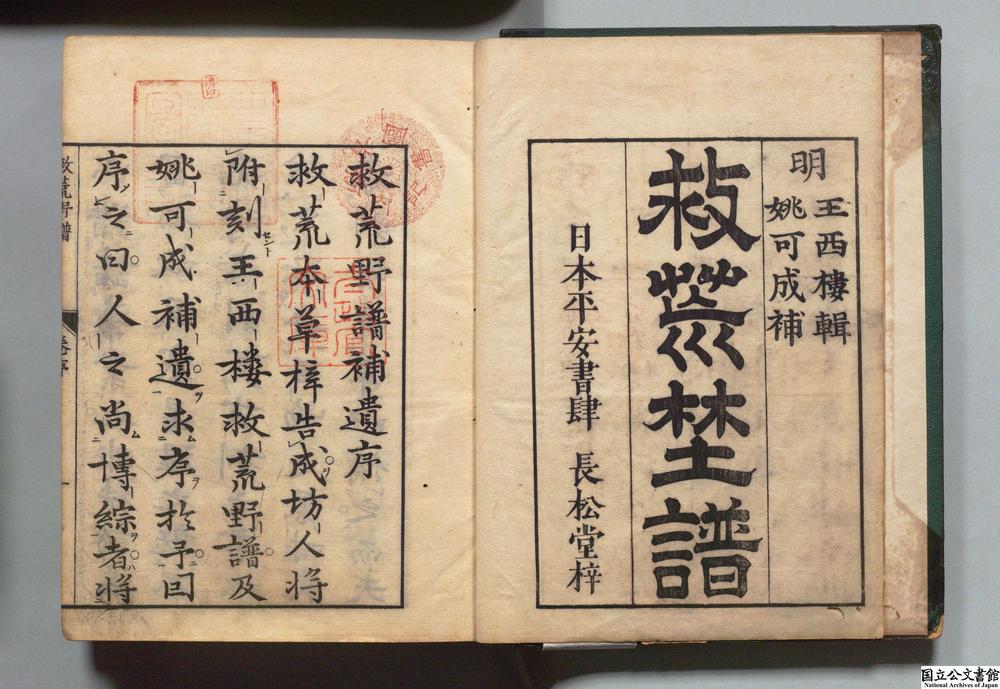 明
王西樓輯
姚可成補
救荒埜譜
日本平安書肆 長松堂梓
救荒野譜補遺序
救荒本草梓告成坊人将
附刻王西樓救荒野譜及
姚可成補遺求序於予因
序之曰人之尚博綜者将
国立公文書館
National Archives of Japan